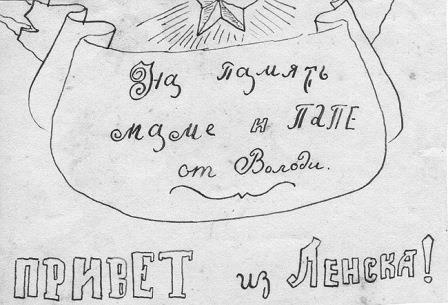 На память
маме и ПАПЕ
от Володи.
ПРИВЕТ из Ленска!